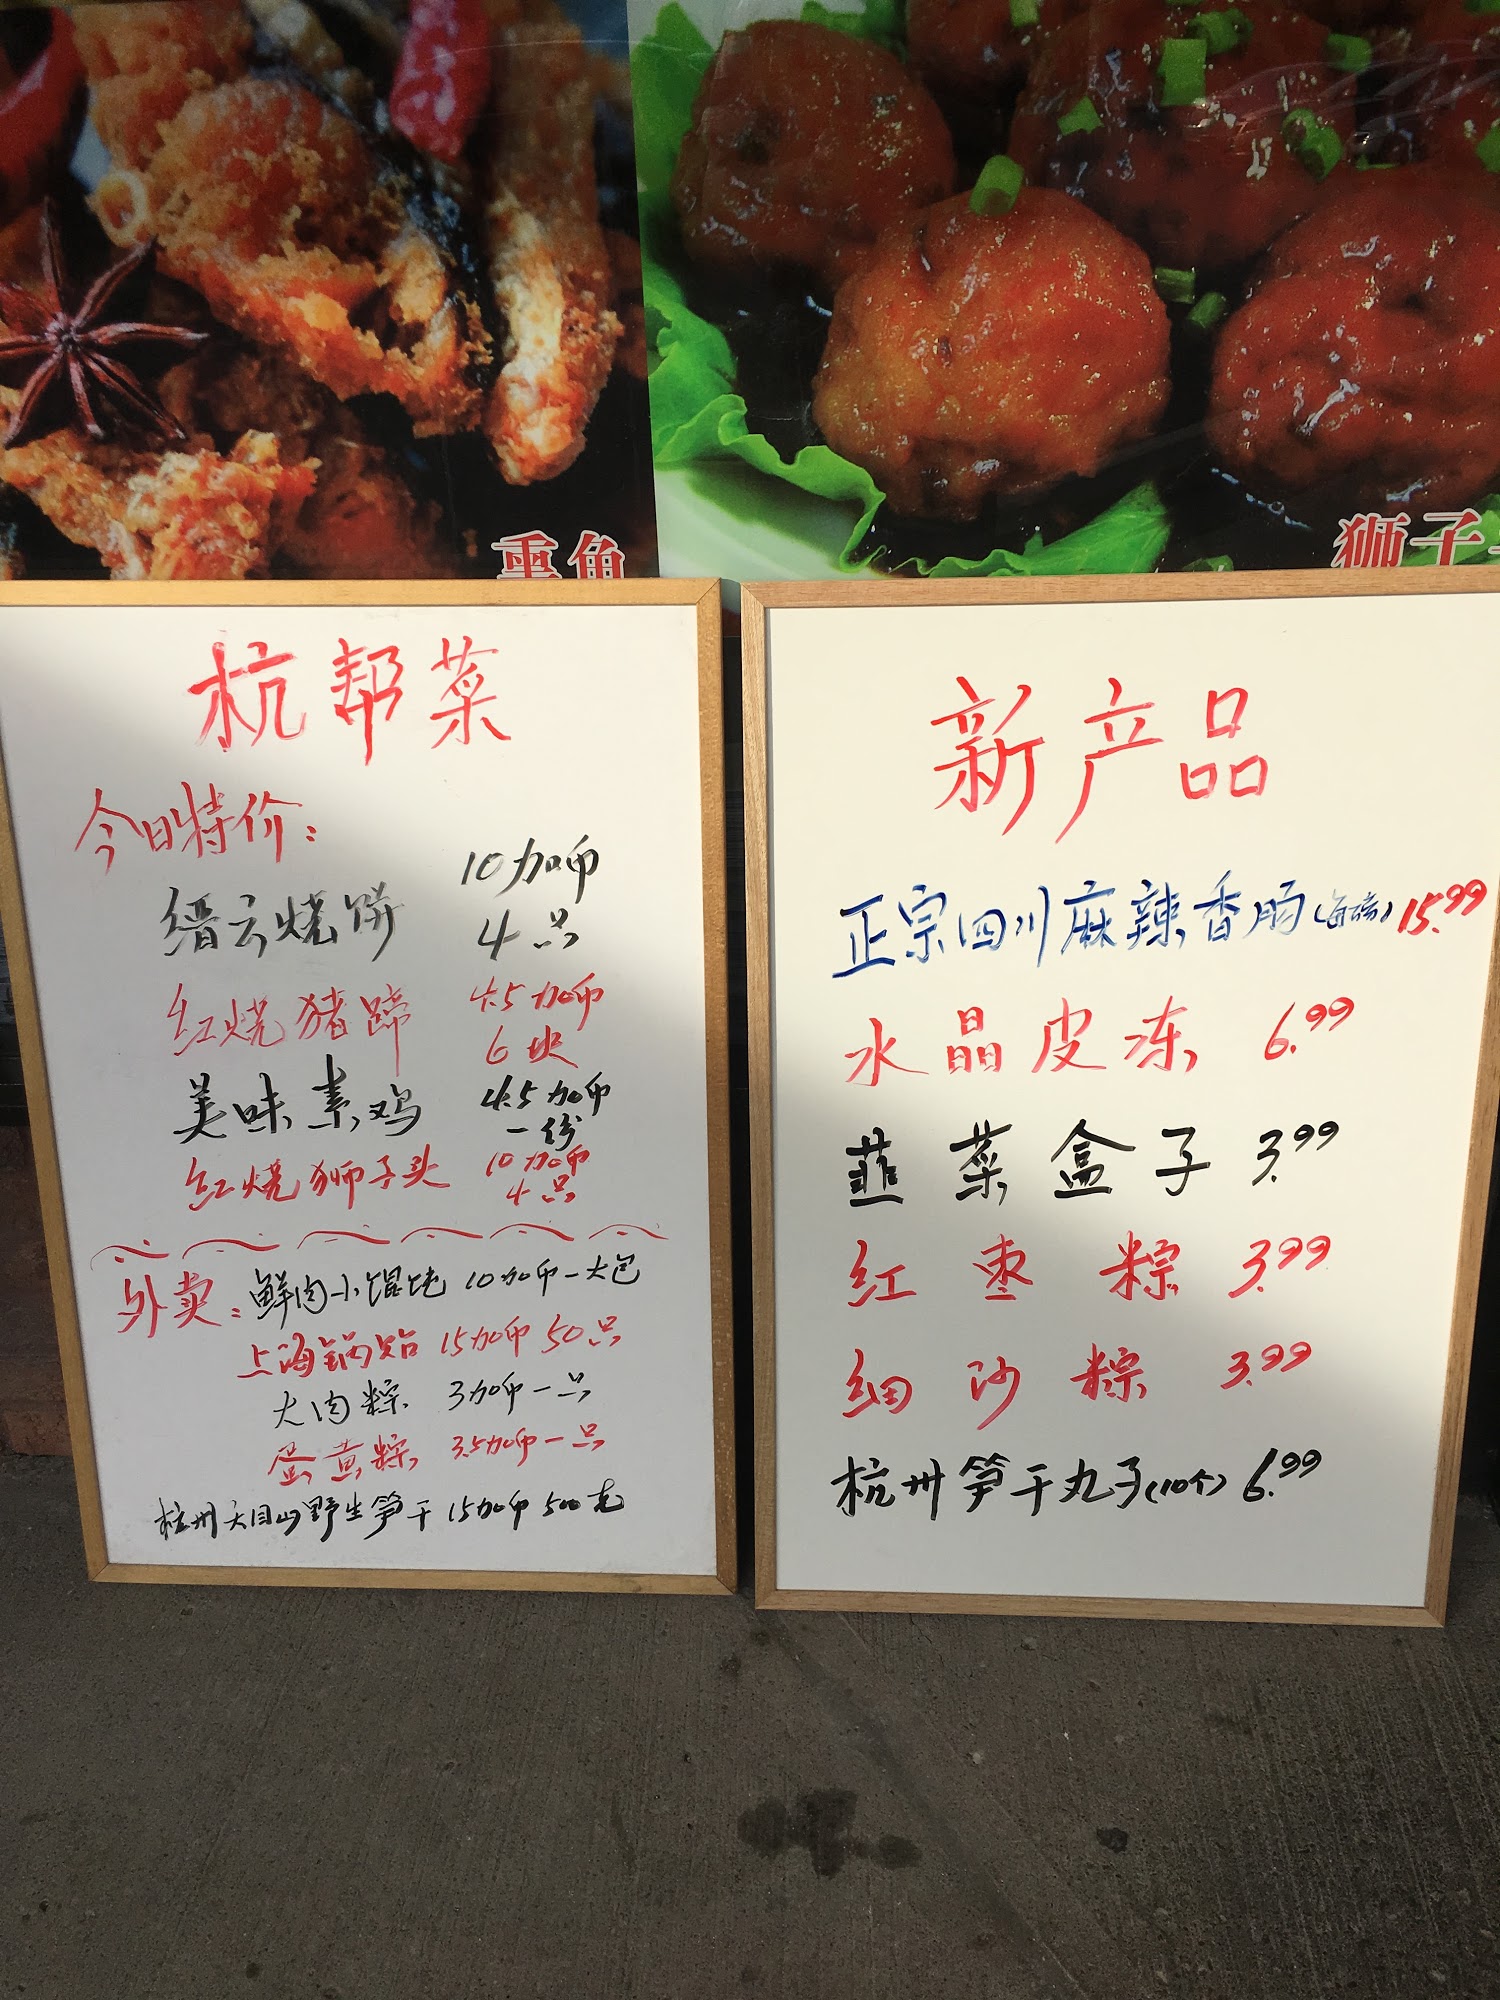 熏鱼
狮子
杭帮菜
今日特价：
缙云烧饼 10加币 4只
红烧猪蹄 4.5加币 6块
美味素鸡 4.5加币 一份
红烧狮子头 10加币 4只
外卖：鲜肉小馄饨 10加币一大包
上海锅贴 15加币 50只
大肉粽 3加币一只
蛋黄粽 3.5加币一只
杭州天目山野生笋干 15加币 500克
新产品
正宗四川麻辣香肠(每磅) 15.99
水晶皮冻 6.99
韮菜盒子 3.99
红枣粽 3.99
细沙粽 3.99
杭州笋干丸子(10个) 6.99